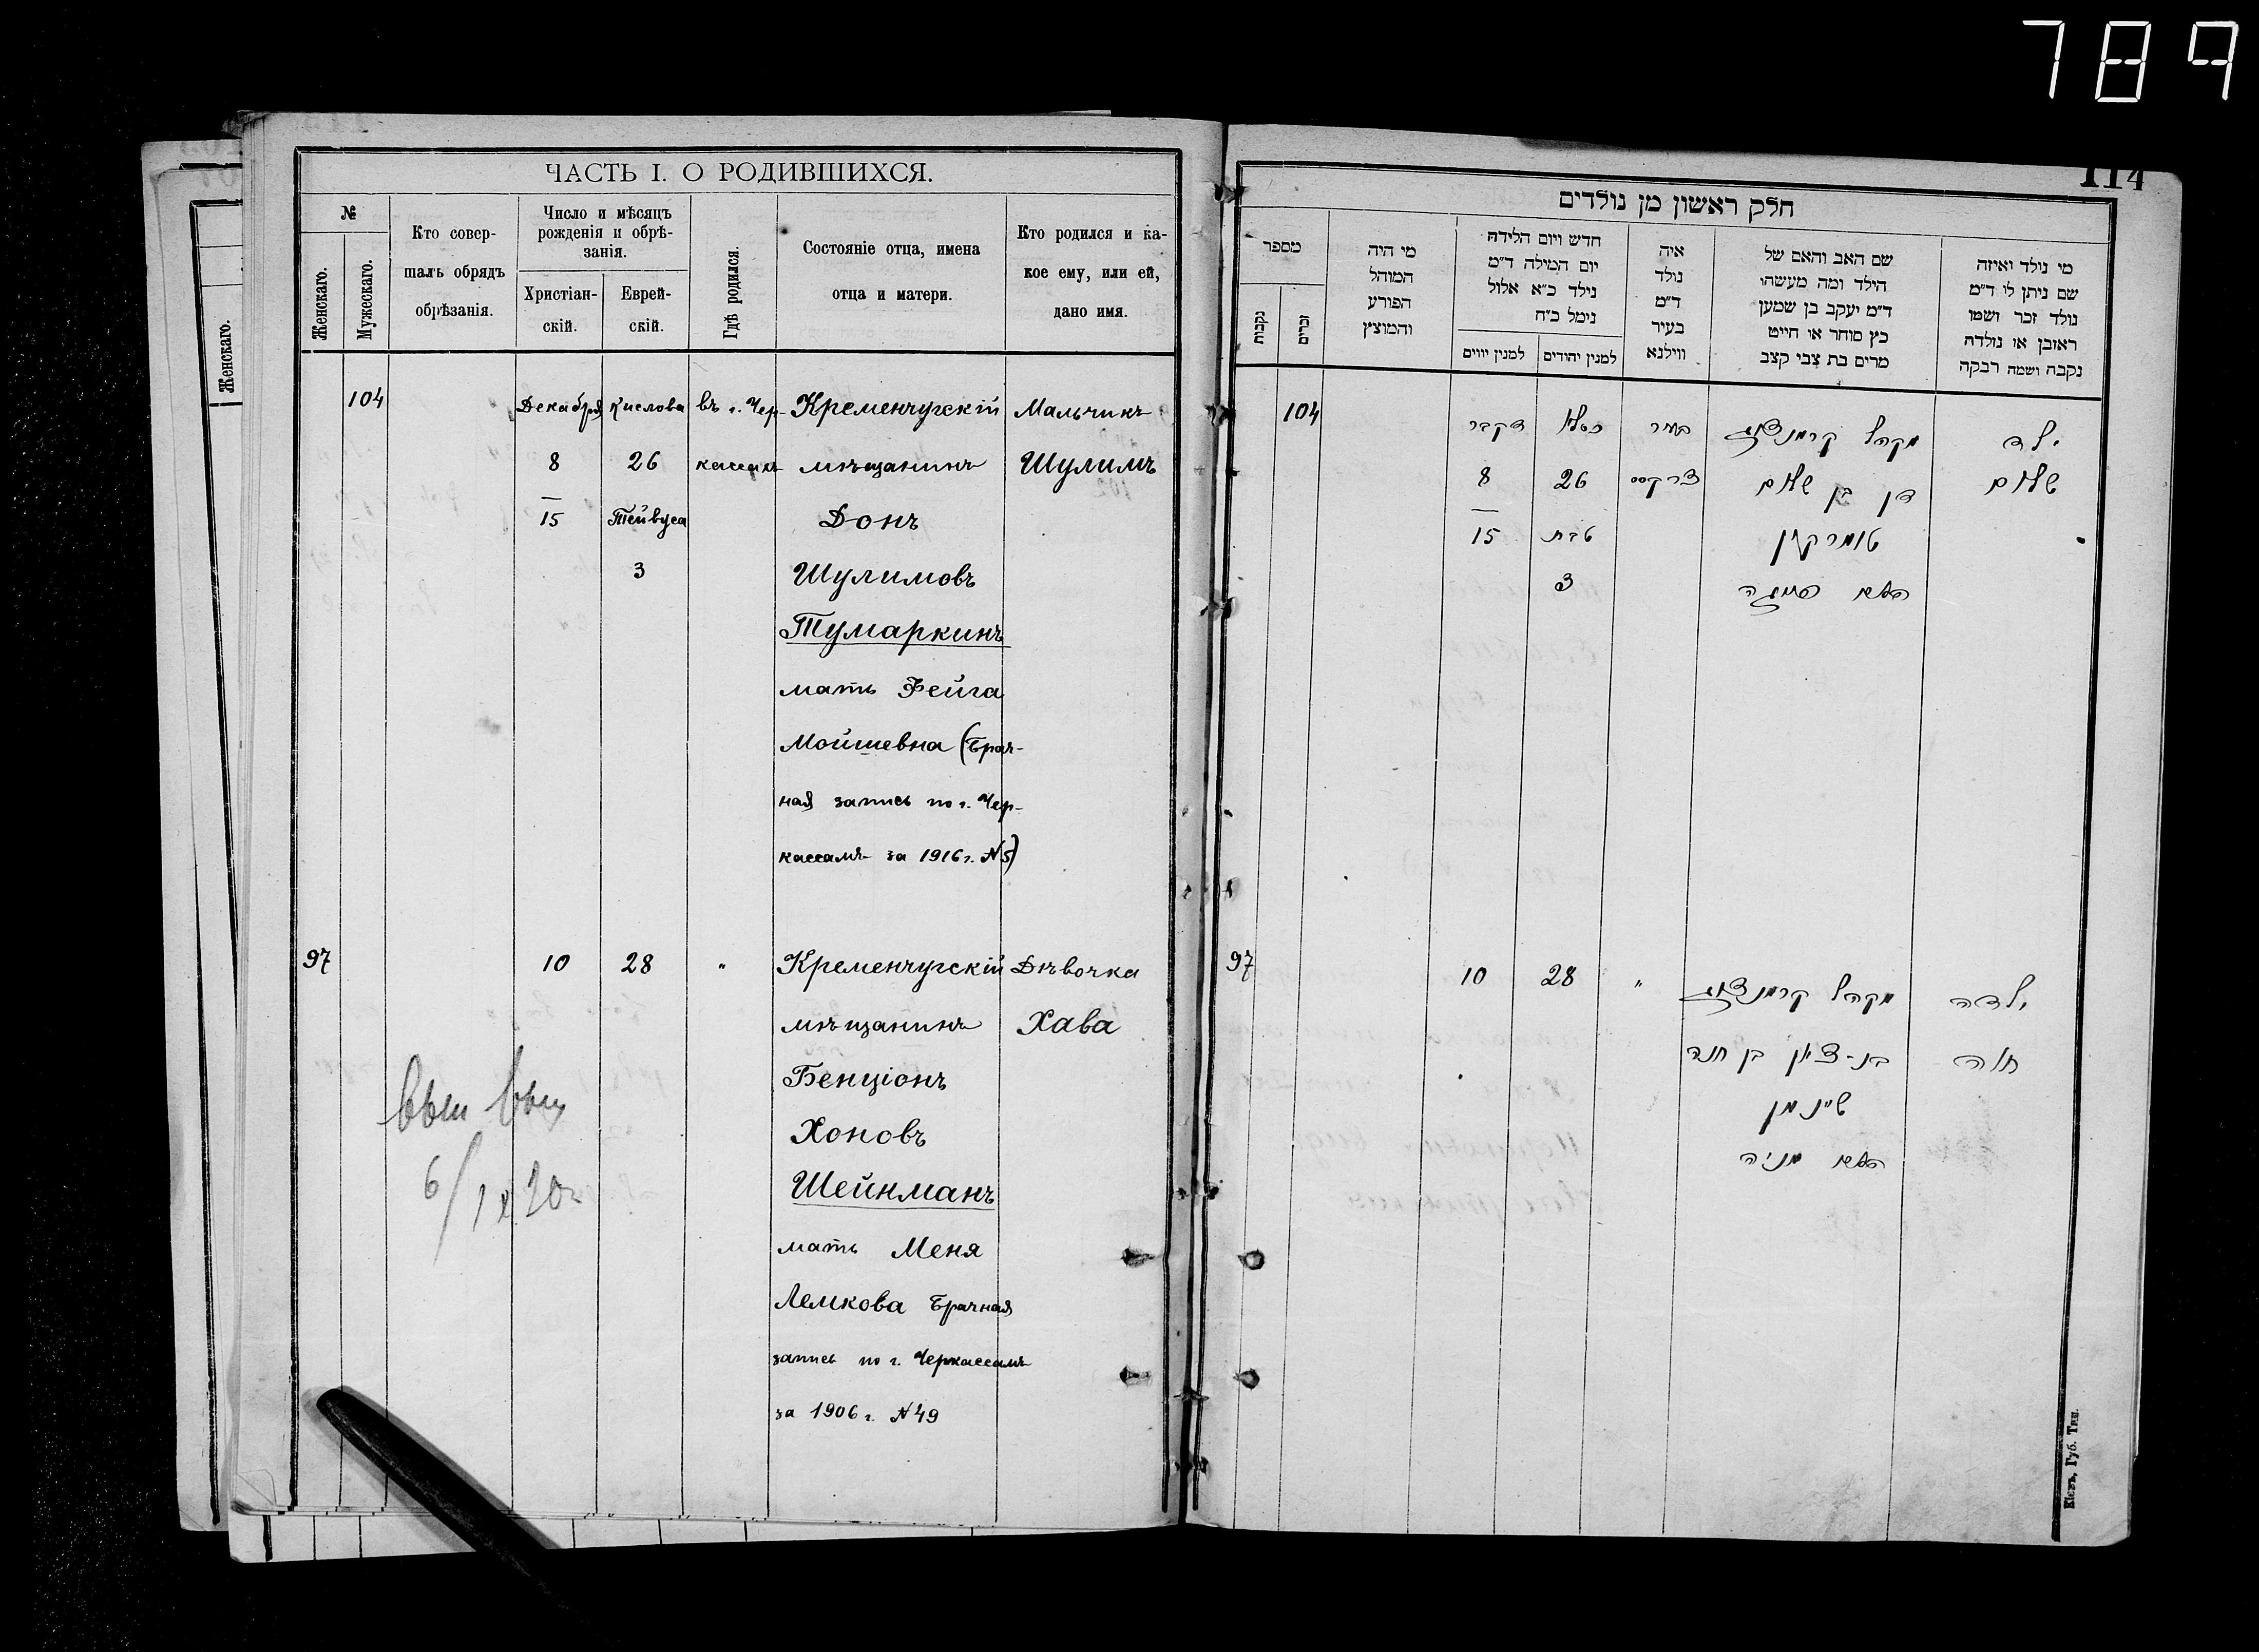 789
ЧАСТЬ I. О РОДИВШИХСЯ.
№
Женскаго.
Мужескаго.
Кто совер-
шалъ обрядъ
обрѣзанія.
Число и мѣсяцъ
рожденія и обрѣ-
занія.
Христіан-
скій.
Еврей-
скій.
Гдѣ родился.
Состояніе отца, имена
отца и матери.
Кто родился и ка-
кое ему, или ей,
дано имя.
Женскаго.
104 Декабря Кислова въ г. Чер- Кременчугскій Мальчикъ
8 26 кассахъ мѣщанинъ Шулимъ
15 Тейвуса Донъ
3 Шулимовъ
Тумаркинъ
мать Фейга
Мойшевна (Брач-
ная запись по г. Чер-
кассамъ за 1916 г. №5)
97 10 28 " Кременчугскій Дѣвочка
мѣщанинъ Хава
Бенціонъ
Хоновъ
Шейнманъ
мать Меня
Лемкова Брачная
запись по г. Черкассамъ
за 1906 г. №49
114
חלק ראשון מן נולדים
מספר
נקבות
זכרים
מי היה
המוהל
הפורע
והמוצץ
חדש ויום הלידה
יום המילה ד"מ
נילד כ"א אלול
נימל כ"ח
למנין יווים
למנין יהודים
איה
נולד
ד"מ
בעיר
ווילנא
שם האב והאם של
הילד ומה מעשהו
ד"מ יעקב בן שמען
כץ סוחר או חייט
מרים בת צבי קצב
מי נולד ואיזה
שם ניתן לו ד"מ
נולד זכר ושמו
ראובן או נולדה
נקבה ושמה רבקה
104 דקבר כסלו בעיר מקהל קרמנצוג ילד
8 26 צרקסס דן בן שלום שלום
15 טבת טומרקין
3 האם פייגה
97 10 28 " מקהל קרמנצוג ילדה
בן-ציון בן חנה חוה
שיינמן
האם מניה
Кіевъ, Губ. Тип.